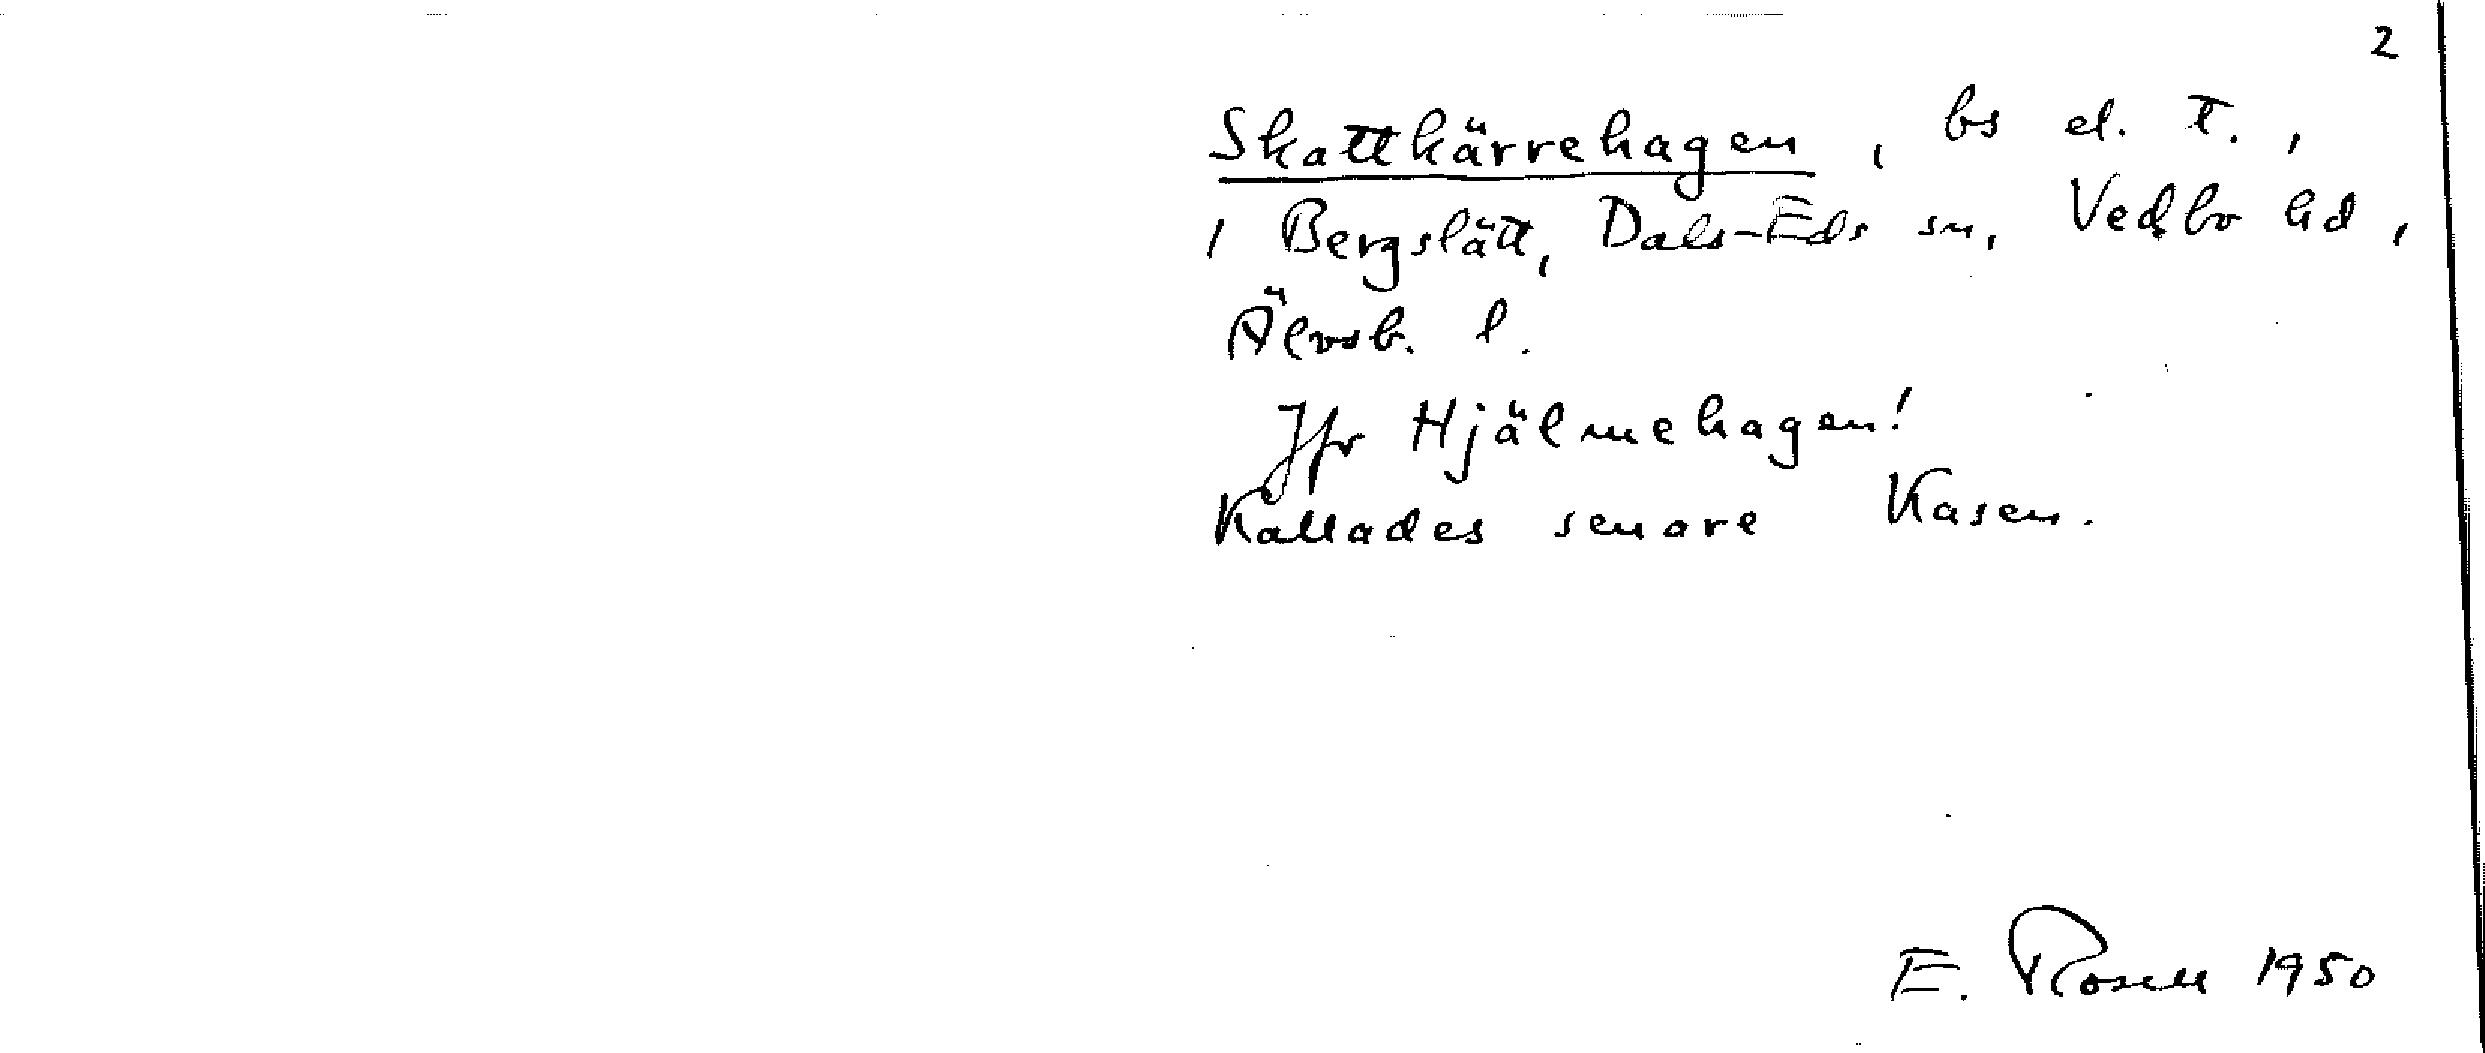 2
Skattkärrehagen, bs el. t.,
i Bergslätt, Dals-Eds sn, Vedbo hd,
Älvsb. l.
Jfr Hjälmehagen!
Kallades senare Kasen.
E. Rosell 1950